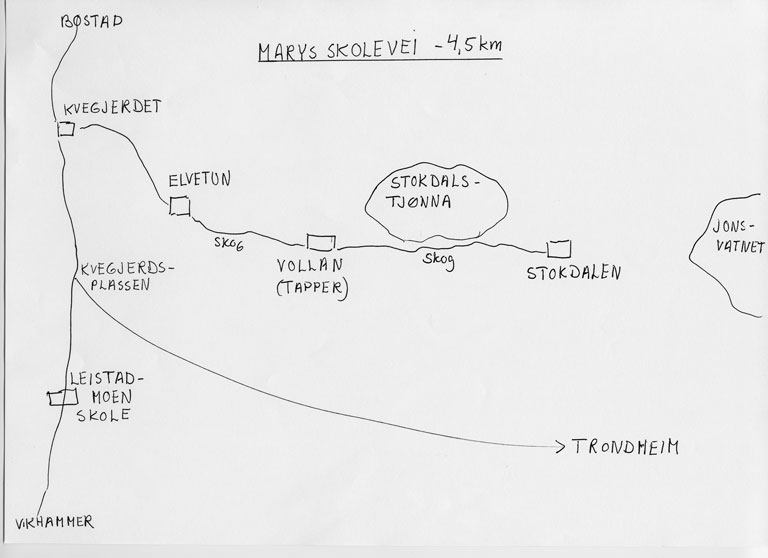 BØSTAD
MARYS SKOLEVEI - 4,5 km
KVEGJERDET
ELVETUN
STOKDALS-
TJØNNA
JONS-
VATNET
SKOG
VOLLAN
(TAPPER)
Skog
STOKDALEN
KVEGJERDS-
PLASSEN
LEISTAD-
MOEN
SKOLE
TRONDHEIM
VIKHAMMER